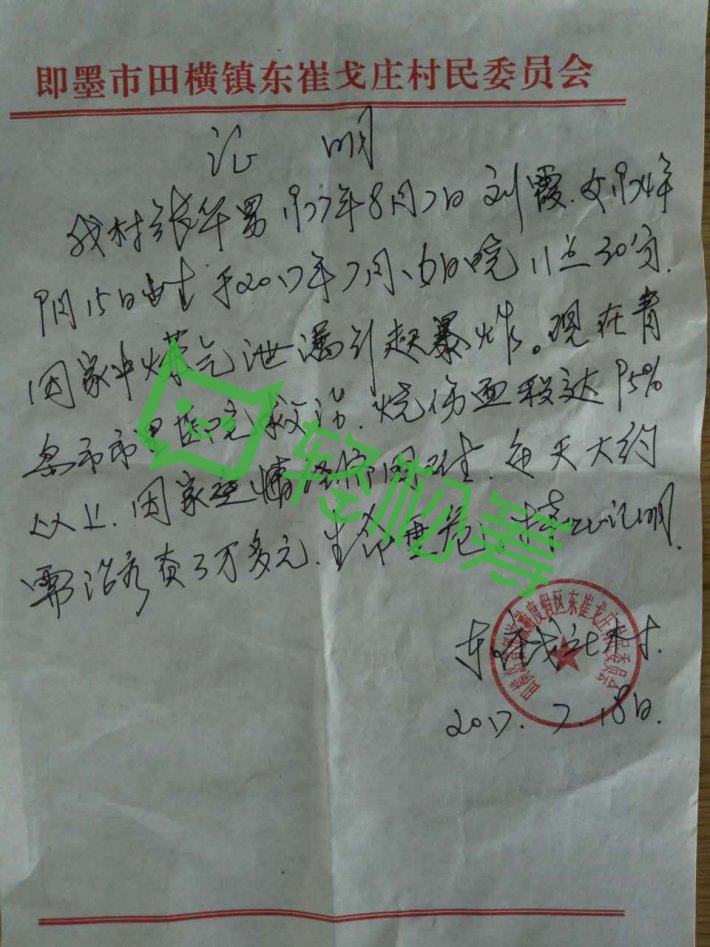 即墨市田横镇东崔戈庄村民委员会
证 明
我村张华男1977年8月7日 刘霞.女1974年
9月15日出生 于2017年7月16日晚11点30分.
因家中煤气泄漏引起暴炸。现在青
岛市市里医院救治.烧伤面积达95%
以上.因家庭情 ,每天大约
需治疗费3万多元.生命垂危.特此证明.
东崔戈庄村.
2017.7.18日.
东崔戈庄村民委员会
轻松筹